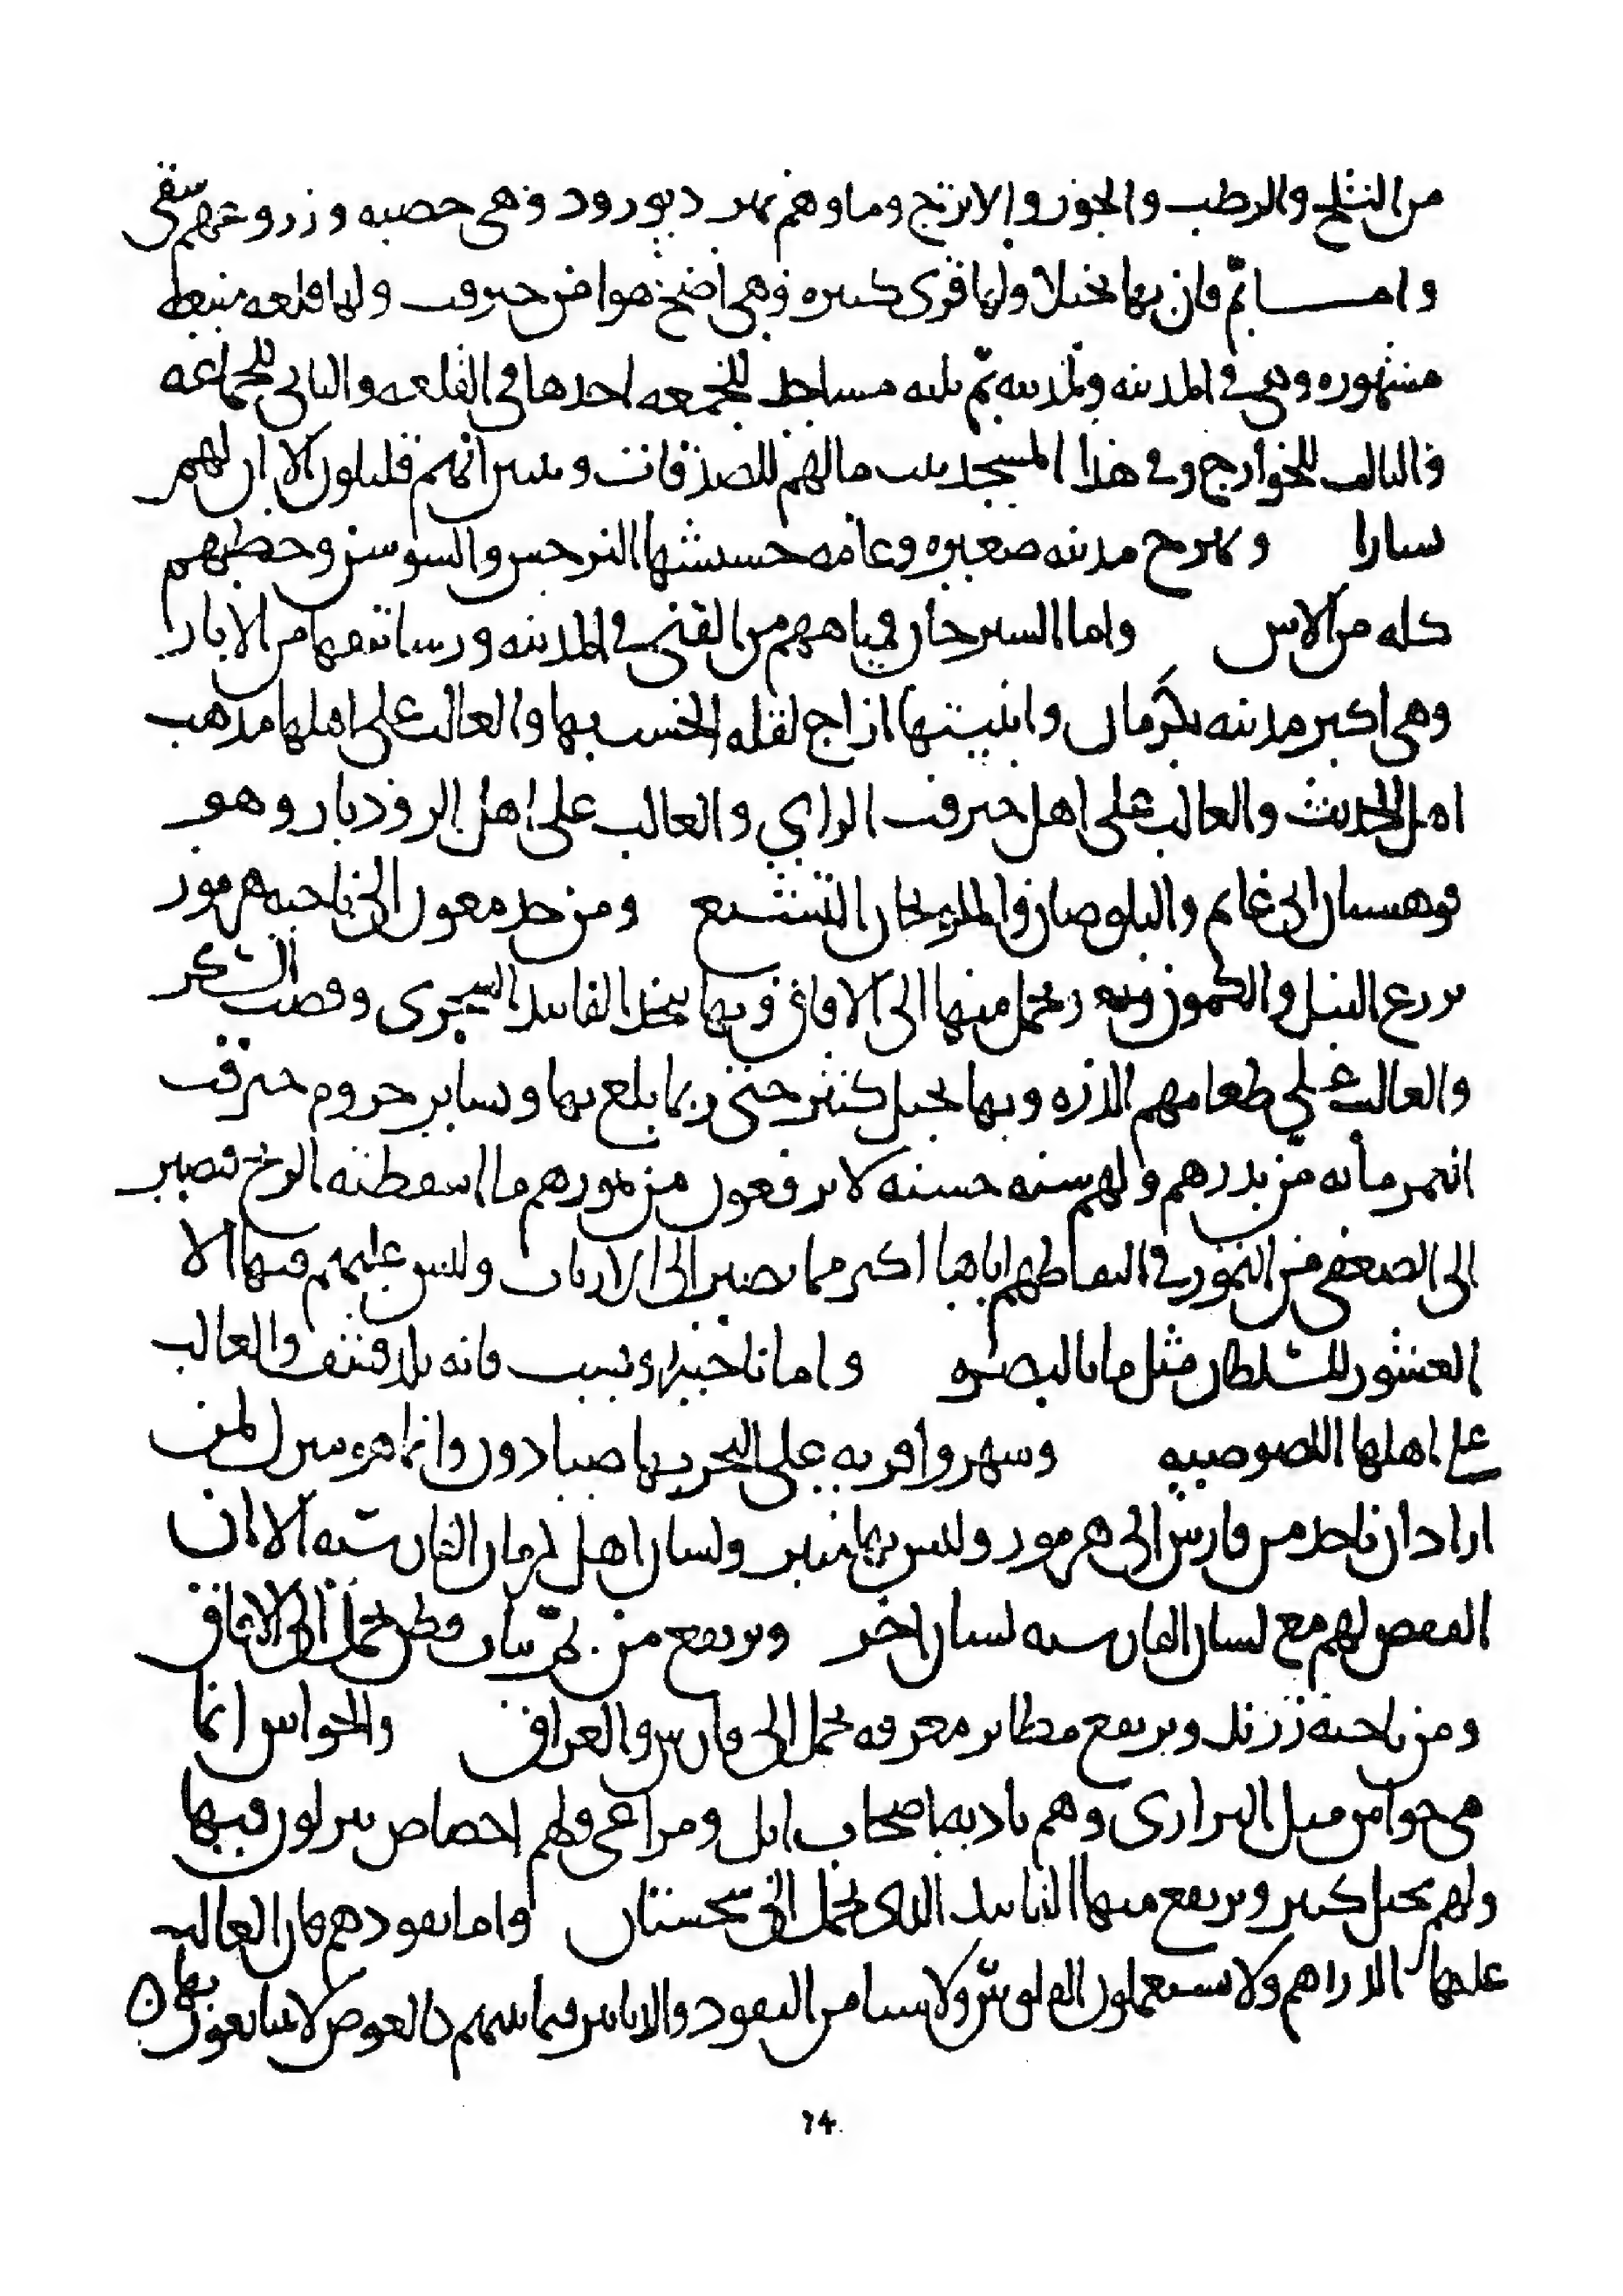 من الثلج والرطب والجوز والاترنج وماوهم نهر ديورود وهى خصبه وزروعهم سقى
واما بم فان بها نخيلا ولها قرى كثيره وهى اصح هوا من جيرفت ولها قلعه منيعه
مشهوره وهى فى المدينه ولمدينه بم ثلثه مساجد للجمعه احدها فى القلعه والثانى للجماعه
والثالث للخوارج وفى هذا المسجد بيت مالهم للصدقات وبسيرانهم قليلون الا ان لهم
يسارا وهرمح مدينه صغيره وعامه حشيشها النرجس والسوسن وحطبهم
كله من الاس واما السيرجان فمياههم من القنى فى المدينه ورساتيقها من الابار
وهى اكبر مدينه بكرمان وابنيتها ازاج لقله الخشب بها والغالب على اهلها مذهب
اهل الحديث والغالب على اهل جيرفت الراى والغالب على اهل الرودبار وهو
قوهستان ابى غانم والبلوص والمنوجان التشيع ومن حد مغون الى ناحيه هرموز
يزرع النيل والكمون ويحمل منها الى الافاق وبها يتخذ الفانيذ السجزى وقصب السكر
والغالب على طعامهم الذره وبها نخيل كثير حتى ربما بلغ بها وبساير جروم جيرفت
التمر مائه من بدرهم ولهم سنه حسنه لا يرفعون من تمورهم ما اسقطته الريح فيصير
الى الضعفى من التمور فى التقاطهم اياها اكثر مما يصير الى الارباب وليس عليهم فيها الا
العشور للسلطان مثل ما بالبصره واما ناحيه فانه بلد قشف والغالب
على اهلها اللصوصيه وسهروا قريه على البحر بها صيادون وانما هو منزل لمن
اراد ان ياخذ من فارس الى هرموز وليس بها منبر ولسان اهل كرمان الفارسيه الا ان
القفص لهم مع لسان الفارسيه لسان اخر ويرتفع من بم ثياب قطن تحمل الى الافاق
ومن ناحيه زرند ويرتفع بطاين معرفه تحمل الى فارس والعراق والخواس انما
هى خواس ميل البرارى وهم باديه اصحاب ابل ومراعى ولهم اخصاص ينزلون فيها
ولهم نخيل كثير ويرتفع منها الفانيذ الذى يحمل الى سجستان واما نقودهم فان الغالب
عليها الدراهم ولا يستعملون الفلوس ولا شيا من النقود والدنانير فيما بينهم كالعوض لا يتبايعون بها
74